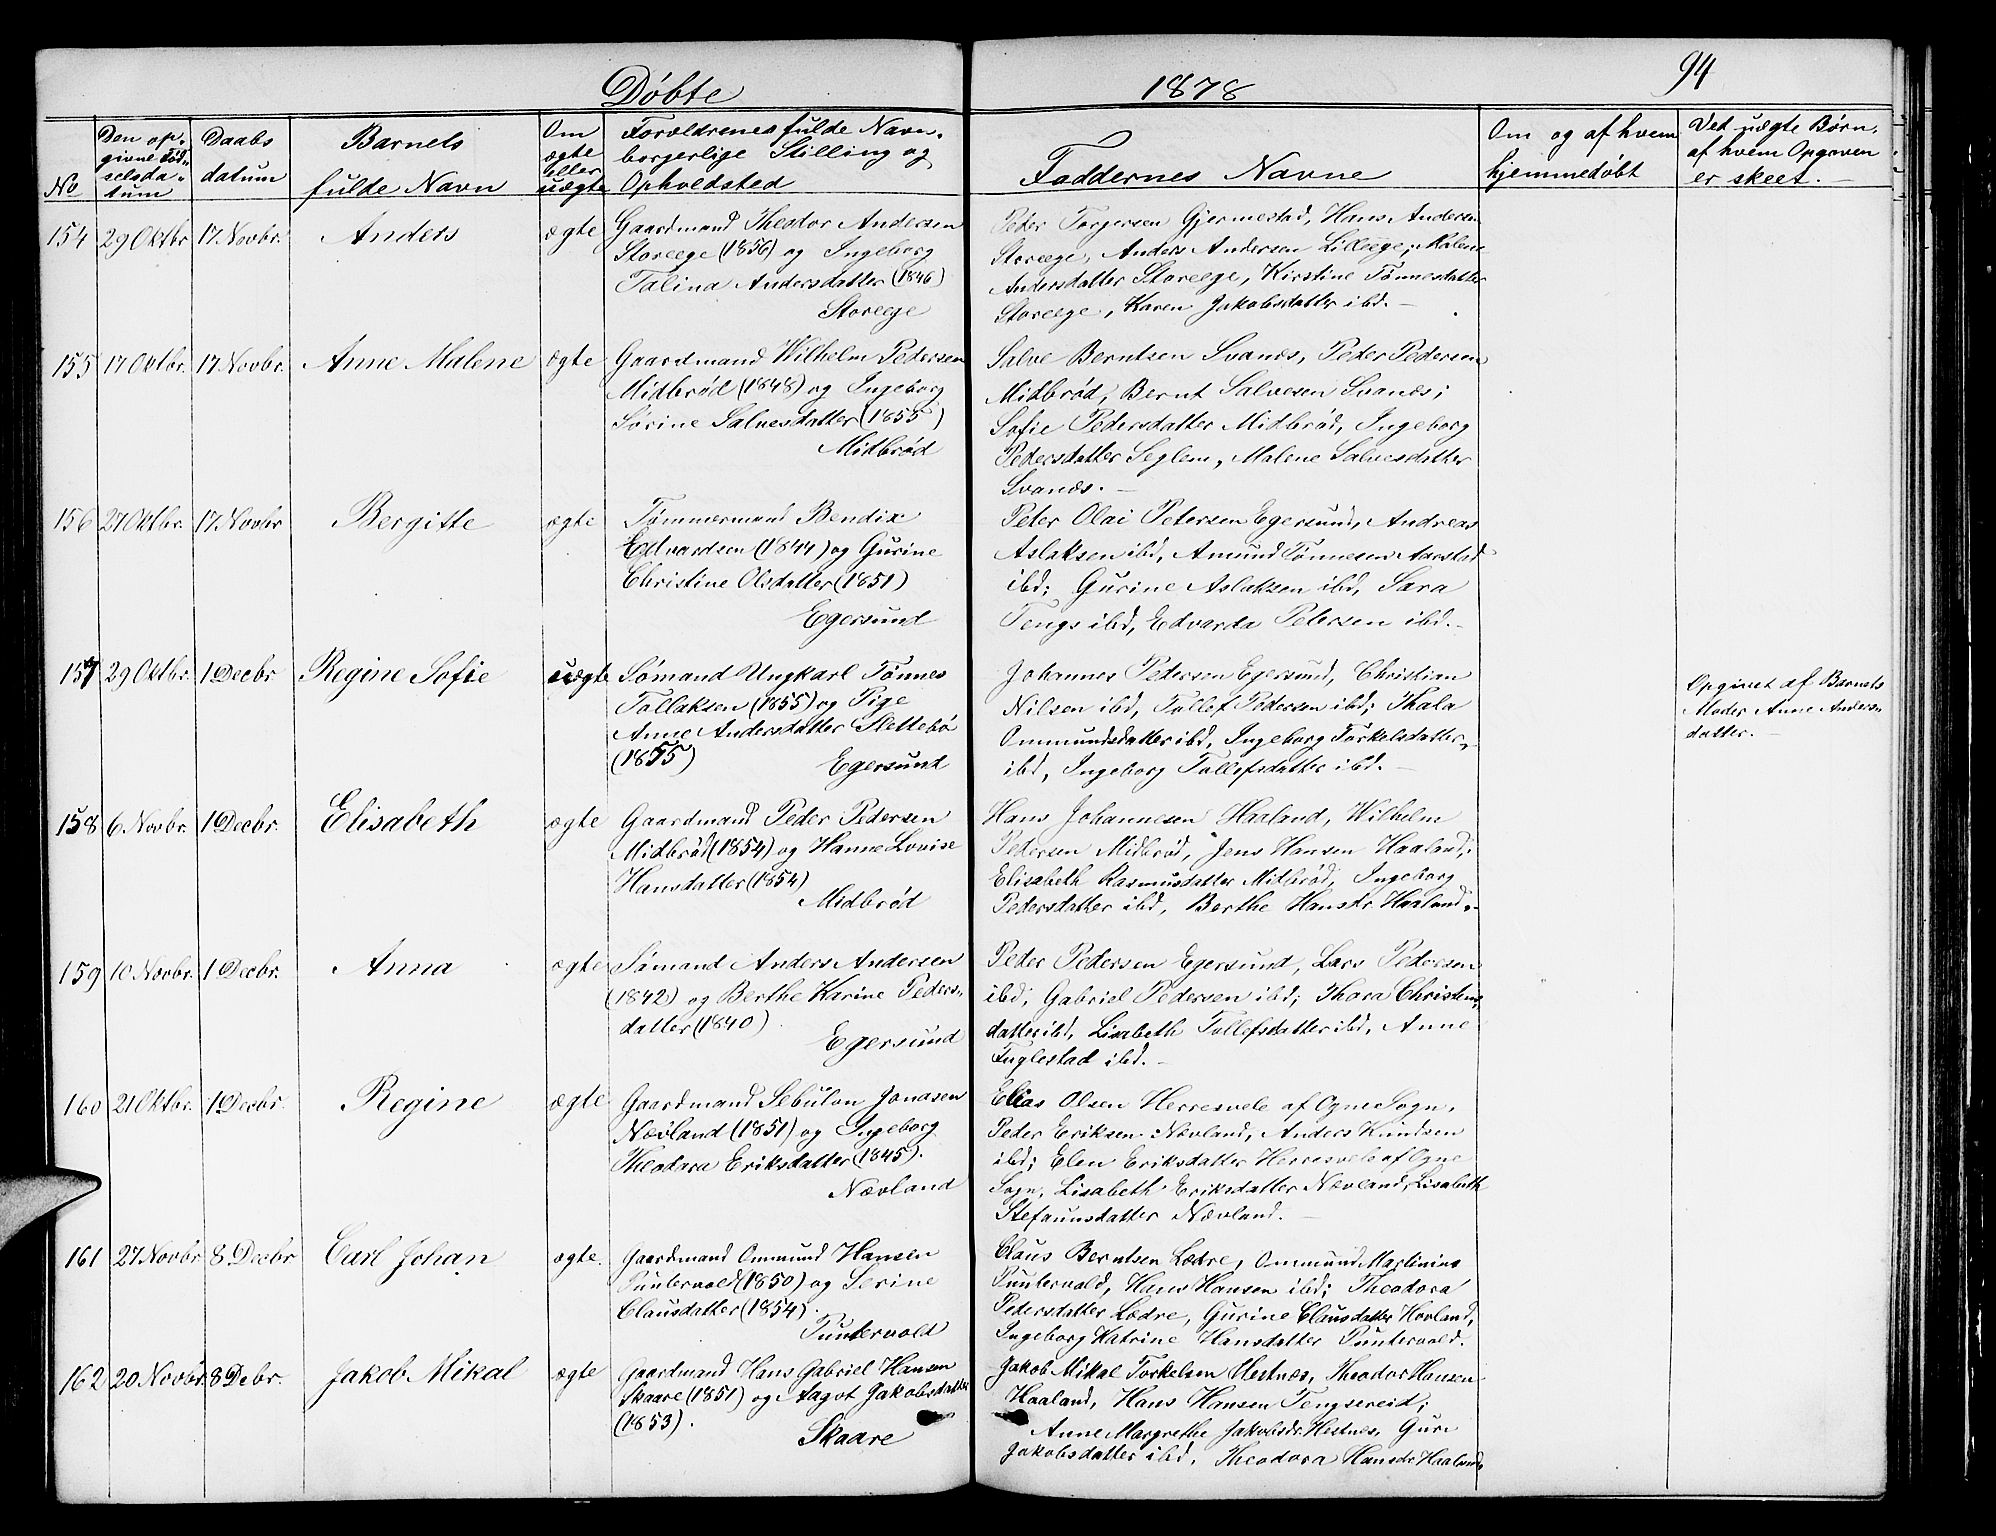 94
Døbte 1878
No
Den op-
givne Fød-
selsda-
tum
Daabs
datum
Barnets
fulde Navn
Om
ægte
eller
uægte
Forældrenes fulde Navn,
borgerlige Stilling og
Opholdsted
Faddernes Navne
Om og af hvem
hjemmedøbt
Ved uægte Børn,
af hvem Opgaven
er skeet.
154 29 Oktbr. 17 Novbr. Anders ægte
Gaardmand Theodor Andersen
Storeege (1856) og Ingeborg
Talina Andersdatter (1846)
Storeege
Peter Torgersen Gjermestad, Hans Andersen
Storeege, Anders Andersen Lilleege; Malene
Andersdatter Storeege, Kirstine Tønnesdatter
Storeege, Karen Jakobsdatter ibd.
155 17 Oktbr. 17 Novbr. Anne Malene ægte
Gaardmand Wilhelm Pedersen
Midbrød (1848) og Ingeborg
Sørine Salvesdatter (1855)
Midbrød
Salve Berntsen Svanæs, Peder Pedersen
Midbrød, Bernt Salvesen Svanæs;
Sofie Pedersdatter Midbrød, Ingeborg
Pedersdatter Seglem, Malene Salvesdatter
Svanæs.
156 27 Oktbr. 17 Novbr Bergitte ægte
Tømmermand Bendix
Edvardsen (1844) og Gurine
Christine Olsdatter (1851)
Egersund
Peter Olai Petersen Egersund, Andreas
Aslaksen ibd, Amund Tønnesen Aarstad
ibd; Gurine Aslaksen ibd, Sara
Tengs ibd, Edvarda Petersen ibd.
157 29 Oktbr. 1 Decbr Regine Sofie uægte
Sømand Ungkarl Tønnes
Tollaksen (1855) og Pige
Anne Andersdatter Slettebø
(1855) Egersund
Johannes Petersen Egersund, Christian
Nilsen ibd, Tollef Pedersen ibd; Thala
Ommundsdatter ibd, Ingeborg Torkelsdatter
ibd, Ingeborg Tollefsdatter ibd.
Opgivet af Barnets
Moder Anne Anders-
datter.
158 6 Novbr. 1 Decbr. Elisabeth ægte
Gaardmand Peder Pedersen
Midbrød (1854) og Hanne Lovise
Hansdatter (1854)
Midbrød
Hans Johannesen Haaland, Wilhelm
Pedersen Midbrød, Jens Hansen Haaland;
Elisabeth Rasmusdatter Midbrød, Ingeborg
Pedersdatter ibd, Berthe Hansdr. Haaland.
159 10 Novbr. 1 Decbr. Anna ægte
Sømand Anders Andersen
(1842) og Berthe Karine Peders-
datter (1840).
Egersund
Peder Pedersen Egersund, Lars Pedersen
ibd, Gabriel Pedersen ibd; Thora Christens-
datter ibd, Lisabeth Tollefsdatter ibd, Anne
Fuglestad ibd.
160 21 Oktbr. 1 Decbr. Regine ægte
Gaardmand Sebulon Jonasen
Nævland (1851) og Ingeborg
Theodora Eriksdatter (1845).
Nævland
Elias Olsen Herresvele af Ogne Sogn,
Peder Eriksen Nævland, Anders Knudsen
ibd; Elen Eriksdatter Herresvele af Ogne
Sogn, Lisabeth Eriksdatter Nævland, Lisabeth
Stefaunsdatter Nævland.
161 27 Novbr. 8 Decbr Carl Johan ægte.
Gaardmand Ommund Hansen
Puntervold (1850) og Serine
Clausdatter (1854).
Puntervold
Claus Berntsen Lædre, Ommund Martinius
Puntervold, Hans Hansen ibd; Theodora
Pedersdatter Lædre, Gurine Clausdatter Hovland,
Ingeborg Katrine Hansdatter Puntervold.
162 20 Novbr. 8 Debr. Jakob Mikal ægte
Gaardmand Hans Gabriel Hansen
Skaare (1851) og Aagot Jakobsdatter
(1853).
Skaare
Jakob Mikal Torkelsen Hestnæs, Theodor Hansen
Haaland, Hans Hansen Tengsereid;
Anne Margrethe Jakobsdr. Hestnes, Guri
Jakobsdatter ibd, Theodora Hansdr. Haaland.